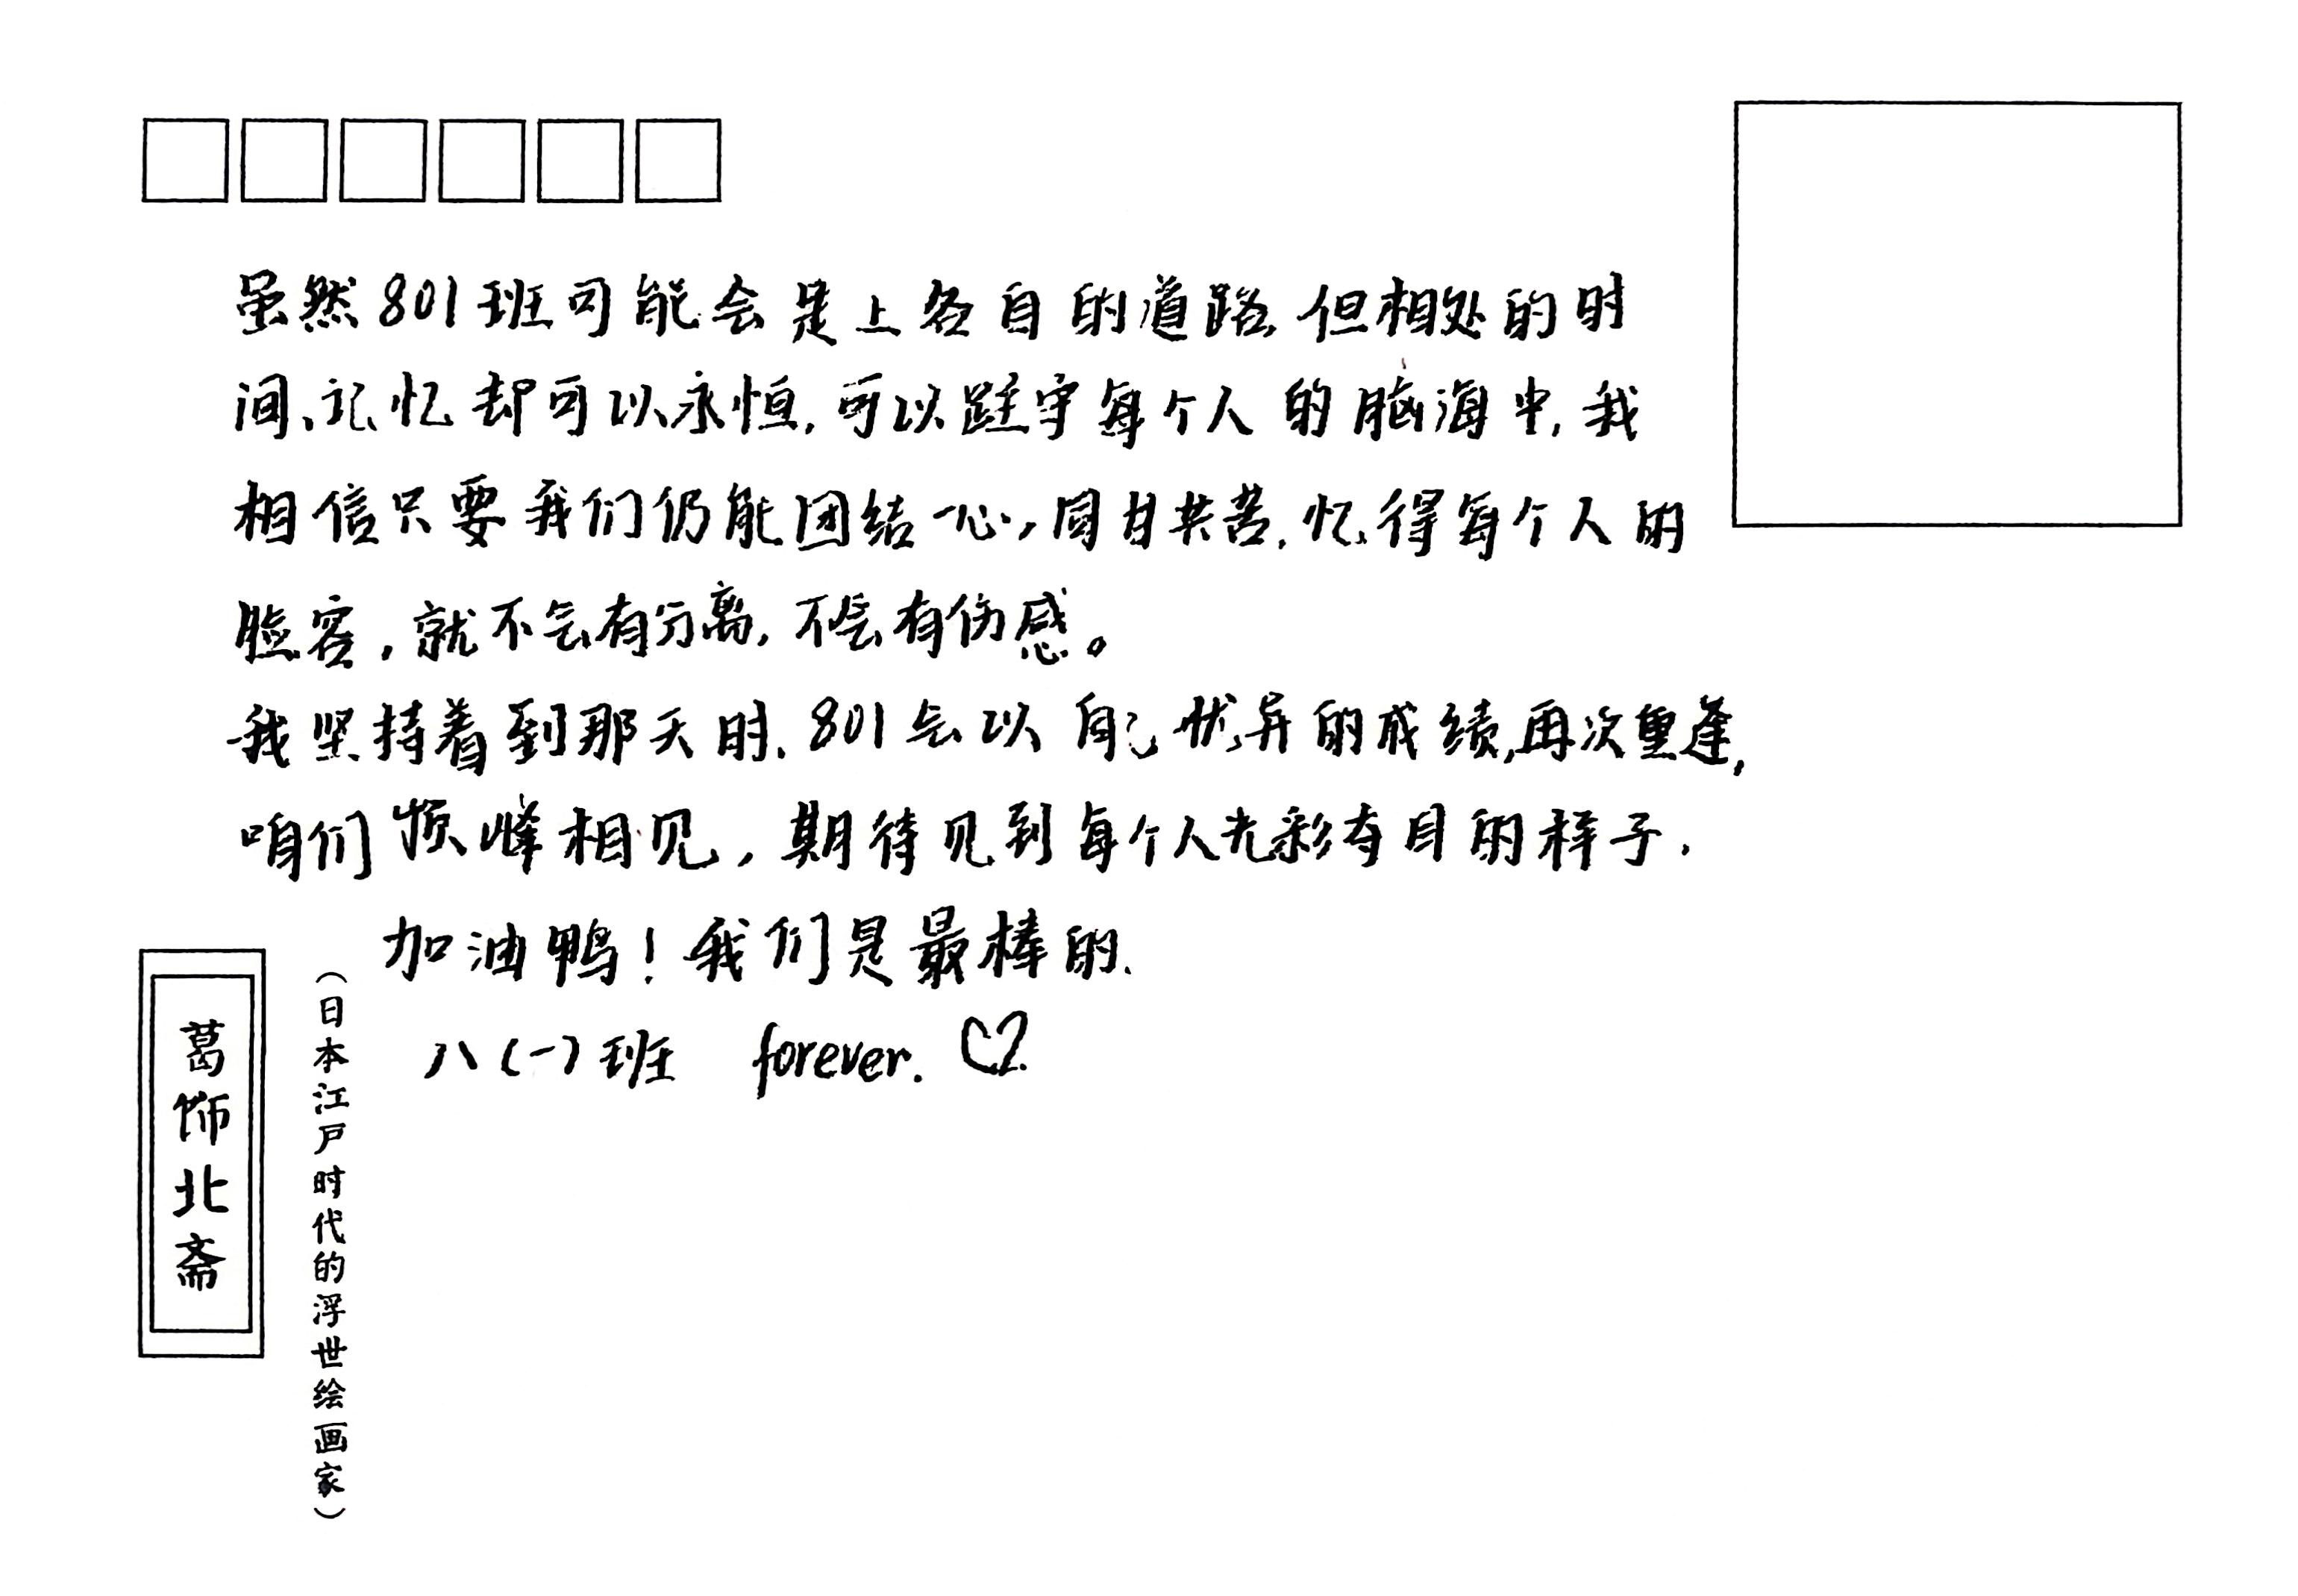 虽然801班可能会是上各自的道路,但相处的时
间、记忆却可以永恒,可以 每个人的脑海中,我
相信只要我们仍能团结一心,同甘共苦,忆得每个人的
脸容,就不会有分离,不会有伤感。
我坚持着到那天时,801会以自己优异的成绩,再次重逢,
咱们顶峰相见,期待见到每个人光彩夺目的样子.
加油鸭!我们是最棒的.
八(一)班 forever. ♡
葛饰北斋
(日本江户时代的浮世绘画家)